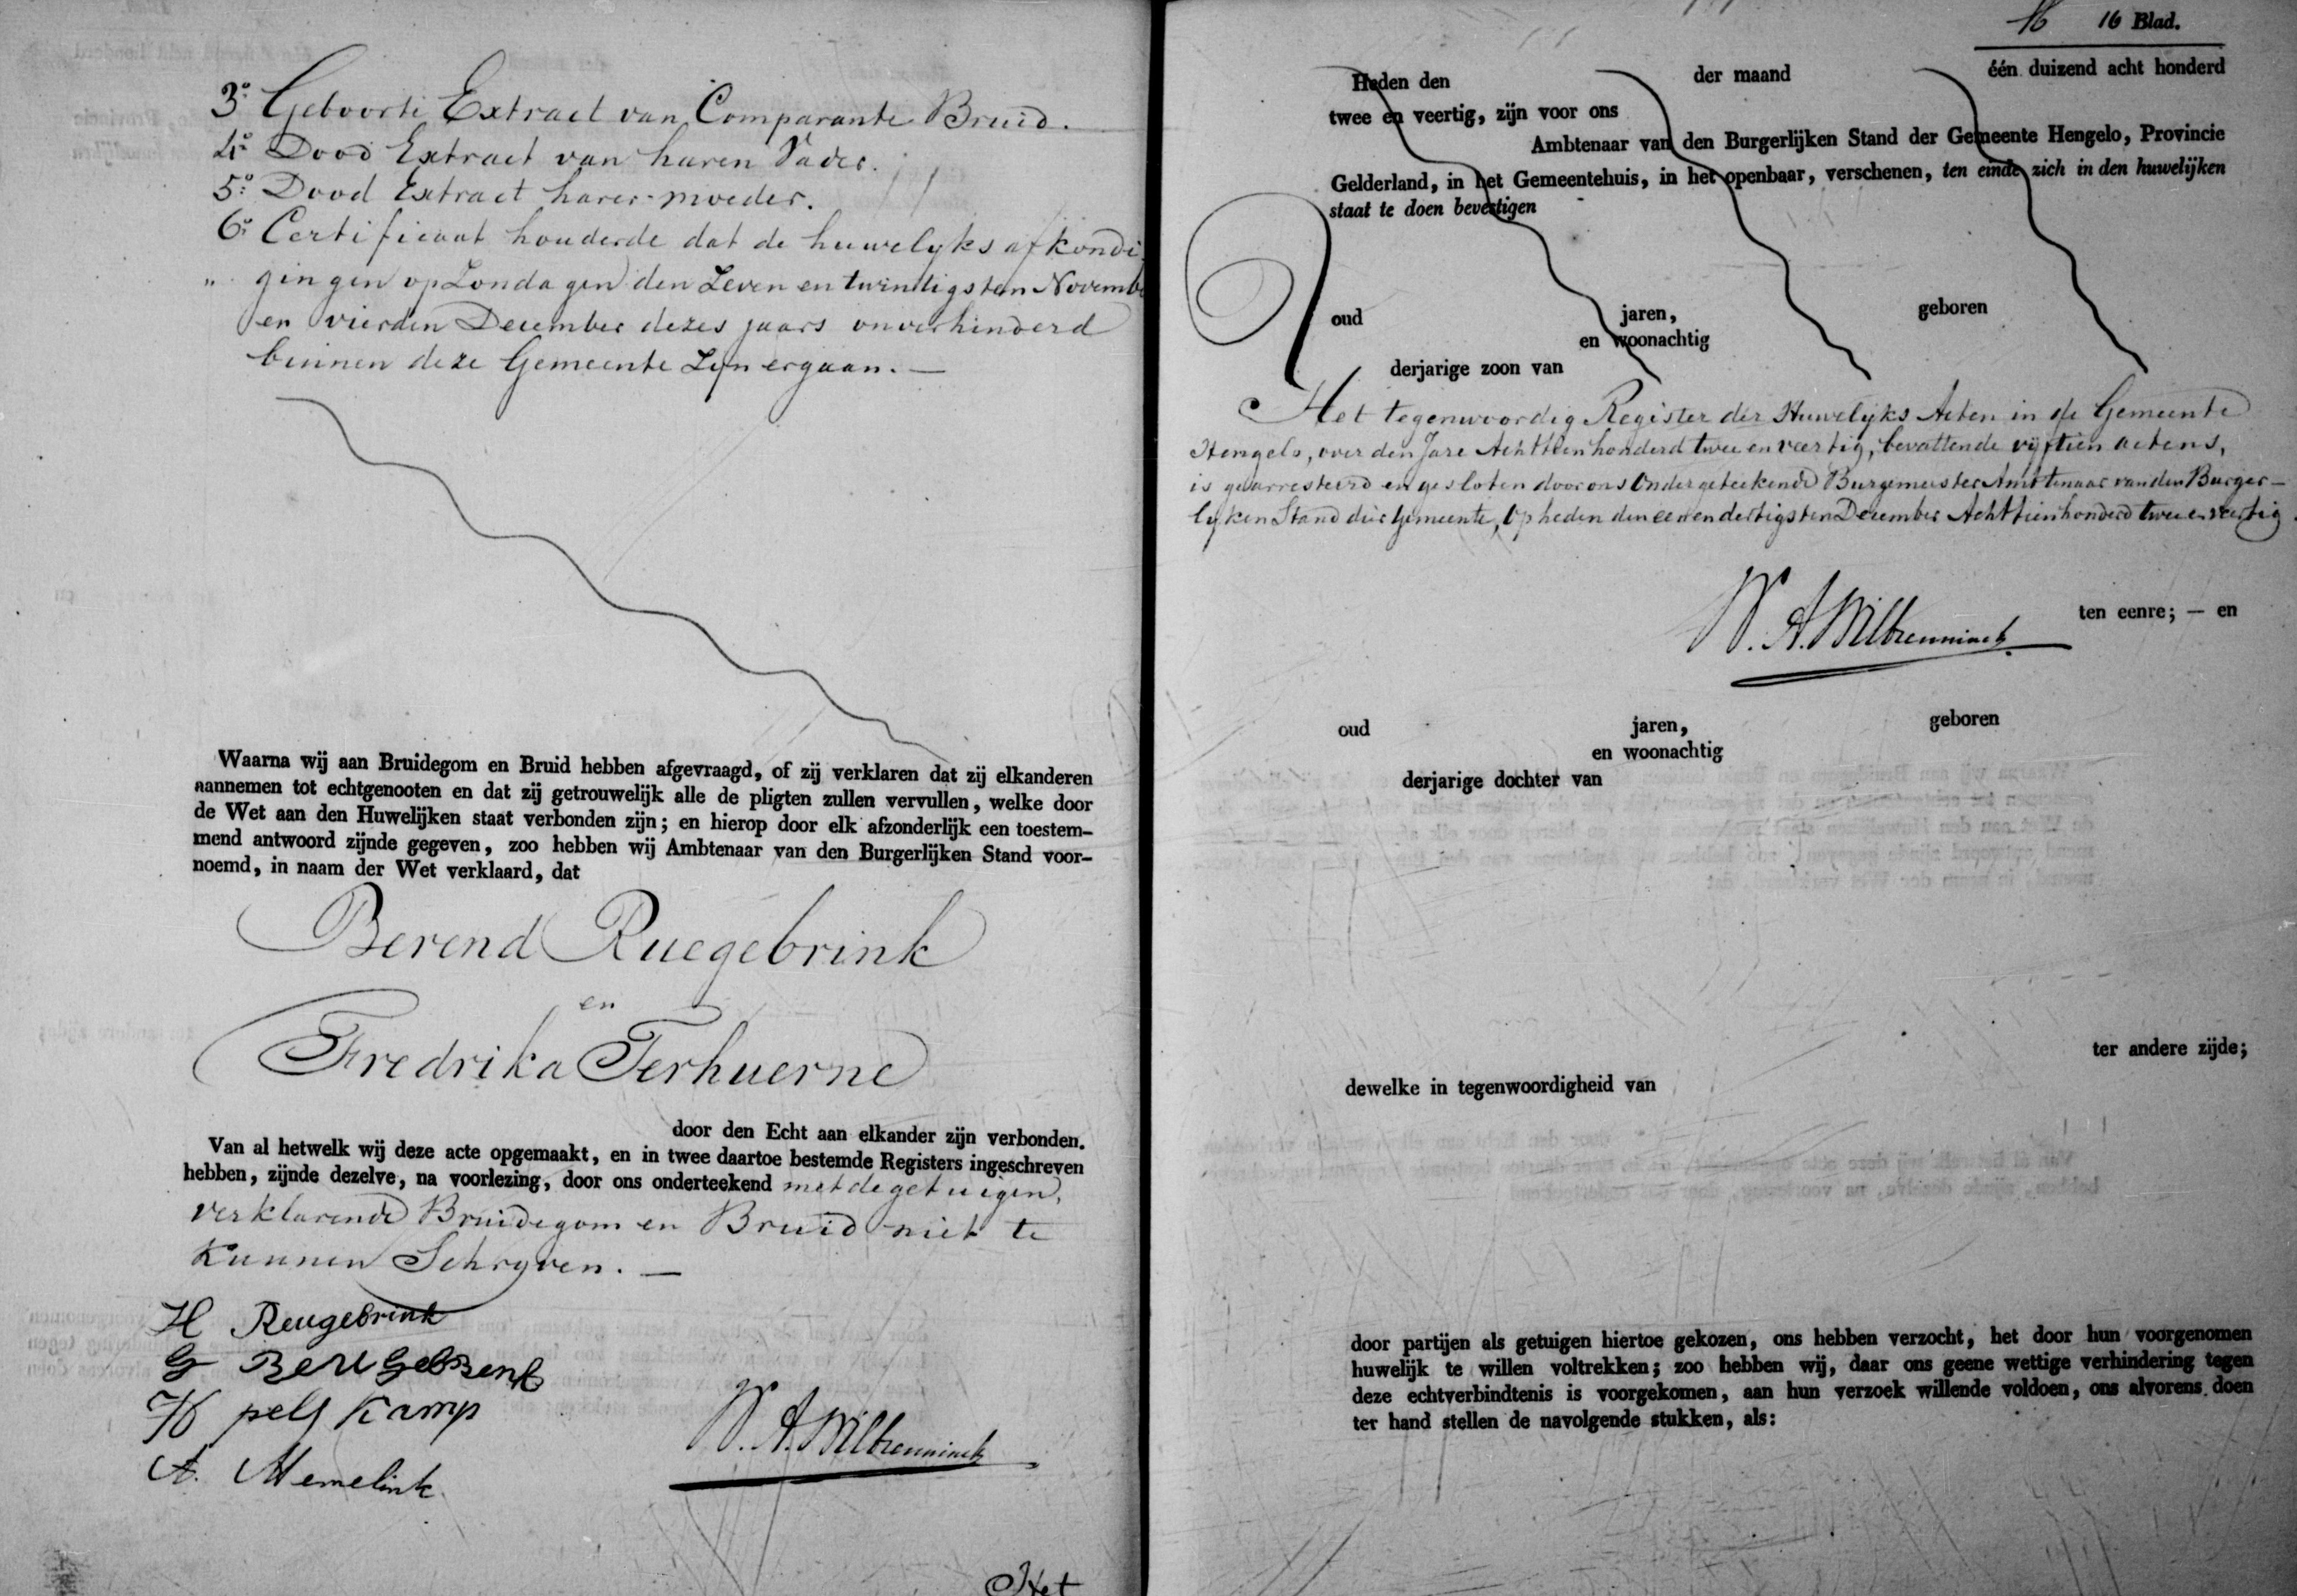 3o Geboorte Extract van Comparante Bruid.
4o Dood Extract van haren Vader.
5o Dood Extract harer moeder.
6o Certificaat houdende dat de huwelyks afkondi-
" gingen op Zondagen den Zeven en twintigsten Novemb
en vierden December dezes jaars onverhinderd
binnen deze Gemeente Zyn ergaan. —
Waarna wij aan Bruidegom en Bruid hebben afgevraagd, of zij verklaren dat zij elkanderen
aannemen tot echtgenooten en dat zij getrouwelijk alle de pligten zullen vervullen, welke door
de Wet aan den Huwelijken staat verbonden zijn; en hierop door elk afzonderlijk een toestem-
mend antwoord zijnde gegeven, zoo hebben wij Ambtenaar van den Burgerlijken Stand voor-
noemd, in naam der Wet verklaard, dat
Berend Ruegebrink
en
Fredrika Terhuerne
door den Echt aan elkander zijn verbonden.
Van al hetwelk wij deze acte opgemaakt, en in twee daartoe bestemde Registers ingeschreven
hebben, zijnde dezelve, na voorlezing, door ons onderteekend met de getuigen,
verklarende Bruidegom en Bruid niet te
Kunnen Schryven. —
H Reugebrink
G
pelskamp
A. Memelink
W. A. Wilbrenninck
Het
16 16 Blad.
Heden den der maand één duizend acht honderd
twee en veertig, zijn voor ons
Ambtenaar van den Burgerlijken Stand der Gemeente Hengelo, Provincie
Gelderland, in het Gemeentehuis, in het openbaar, verschenen, ten einde zich in den huwelijken
staat te doen bevestigen
oud jaren, geboren
en woonachtig
derjarige zoon van
Het tegenwoordig Register der Huwelyks Acten in de Gemeente
Hengelo, over den Jare Achttien honderd twee en veertig, bevattende vyftien actens,
is gearresteerd en gesloten door ons Ondergeteekende Burgemeester Ambtenaar van den Burger-
lyken Stand dier Gemeente, Op heden den een en dertigsten December Achttienhonderd twee en veertig
W. A. Wilbrenninck
ten eenre; — en
oud jaren, geboren
en woonachtig
derjarige dochter van
ter andere zijde;
dewelke in tegenwoordigheid van
door partijen als getuigen hiertoe gekozen, ons hebben verzocht, het door hun voorgenomen
huwelijk te willen voltrekken; zoo hebben wij, daar ons geene wettige verhindering tegen
deze echtverbindtenis is voorgekomen, aan hun verzoek willende voldoen, ons alvorens doen
ter hand stellen de navolgende stukken, als: